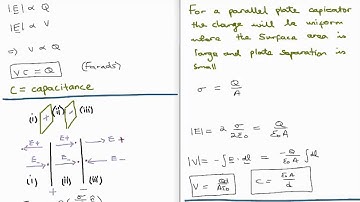 |E| ∝ Q
|E| ∝ V
⇒ V ∝ Q
VC = Q (Farads)
C = capacitance
(i) + (ii) - (iii)
E+ E+ E+
E- E- E-
(i) (ii) (iii)
+ -
For a parallel plate capicator
the charge will be uniform
where the surface area is
large and plate separation is
small
σ = Q/A
|E| = 2 σ/2ε₀ = Q/ε₀A
|V| = -∫E·dl = -Q/ε₀A ∫dl
V = Qd/Aε₀ C = ε₀A/d